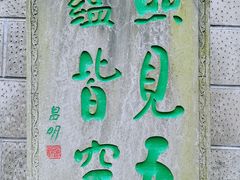 照見五
蘊皆空
昌明